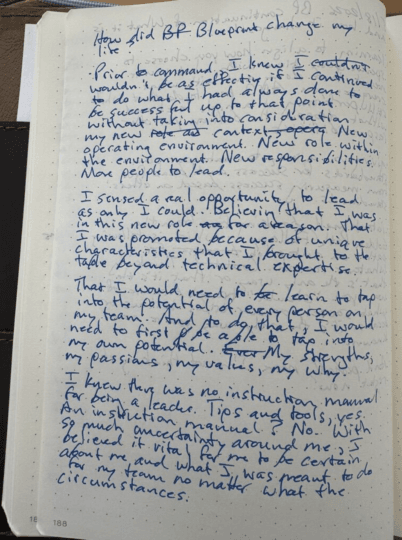 How did BP Blueprint change my
life?
Prior to command I knew I couldn't
wouldn't be as effective if I continued
to do what I had always done to
be successful up to that point
without taking into consideration
my new role as context. New
operating environment. New role within
the environment. New responsibilities.
More people to lead.
I sensed a real opportunity to lead
as only I could. Believing that I was
in this new role for a reason. That
I was promoted because of unique
characteristics that I brought to the
table beyond technical expertise.
That I would need to be learn to tap
into the potential of every person on
my team. And to do that, I would
need to first be able to tap into
my own potential. Even My strengths,
my passions, my values, my why.
I knew there was no instruction manual
for being a leader. Tips and tools, yes.
An instruction manual? No. With
so much uncertainty around me, I
believed it vital for me to be certain
about me and what I was meant to do
for my team no matter what the
circumstances.
188